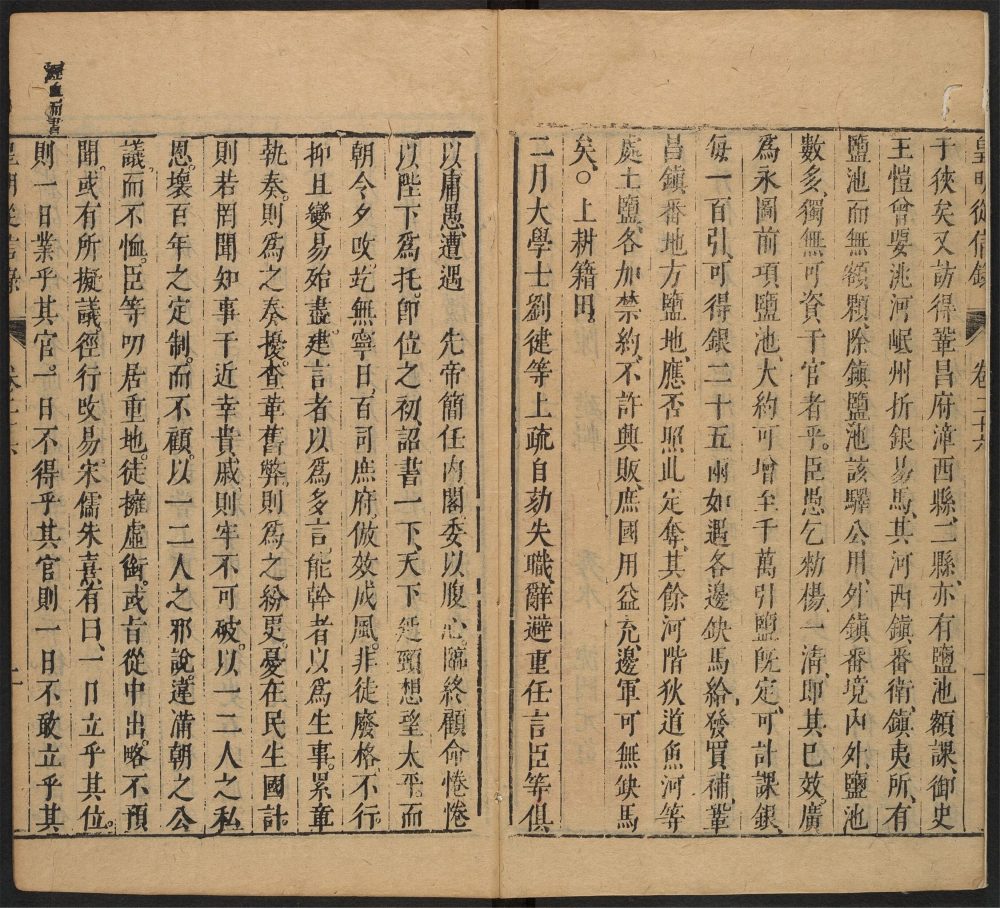 皇明從信錄 卷二十六
于狹矣又訪得鞏昌府漳西縣二縣亦有鹽池額課御史
王愷曾要洮河岷州折銀易馬其河西鎮番衛鎮夷所有
鹽池而無額顆除鎮鹽池該驛公用外鎮番境內外鹽池
數多獨無可資于官者乎臣愚乞勑楊一清卽其已效廣
為永圖前項鹽池大約可增至千萬引鹽旣定可計課銀
每一百引可得銀二十五兩如遇各邊缺馬給發買補鞏
昌鎮番地方鹽地應否照此定奪其餘河階狄道魚河等
處土鹽各加禁約不許興販庶國用益充邊軍可無缺馬
矣○上耕籍田
二月大學士劉健等上疏自劾失職辭避重任言臣等俱
以庸愚遭遇 先帝簡任內閣委以腹心臨終顧命惓惓
以陛下為托卽位之初詔書一下天下延頸想望太平而
朝令夕改訖無寧日百司庶府倣效成風非徒廢格不行
抑且變易殆盡建言者以為多言能幹者以為生事累章
執奏則為之奏擾查革舊弊則為之紛更憂在民生國計
則若罔聞知事干近幸貴戚則牢不可破以一二人之私
恩壞百年之定制而不顧以一二人之邪說違備朝之公
議而不恤臣等叨居重地徒擁虛銜或旨從中出略不預
聞或有所擬議徑行改易宋儒朱熹有曰一日立乎其位
則一日業乎其官一日不得乎其官則一日不敢立乎其